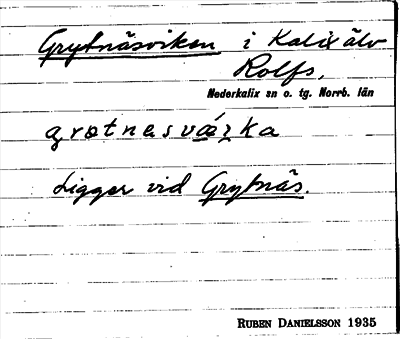 Grytnäsviken i Kalix älv
Rolfs,
Nederkalix sn o. tg. Norrb. län
Ligger vid Grytnäs.
RUBEN DANIELSSON 1935